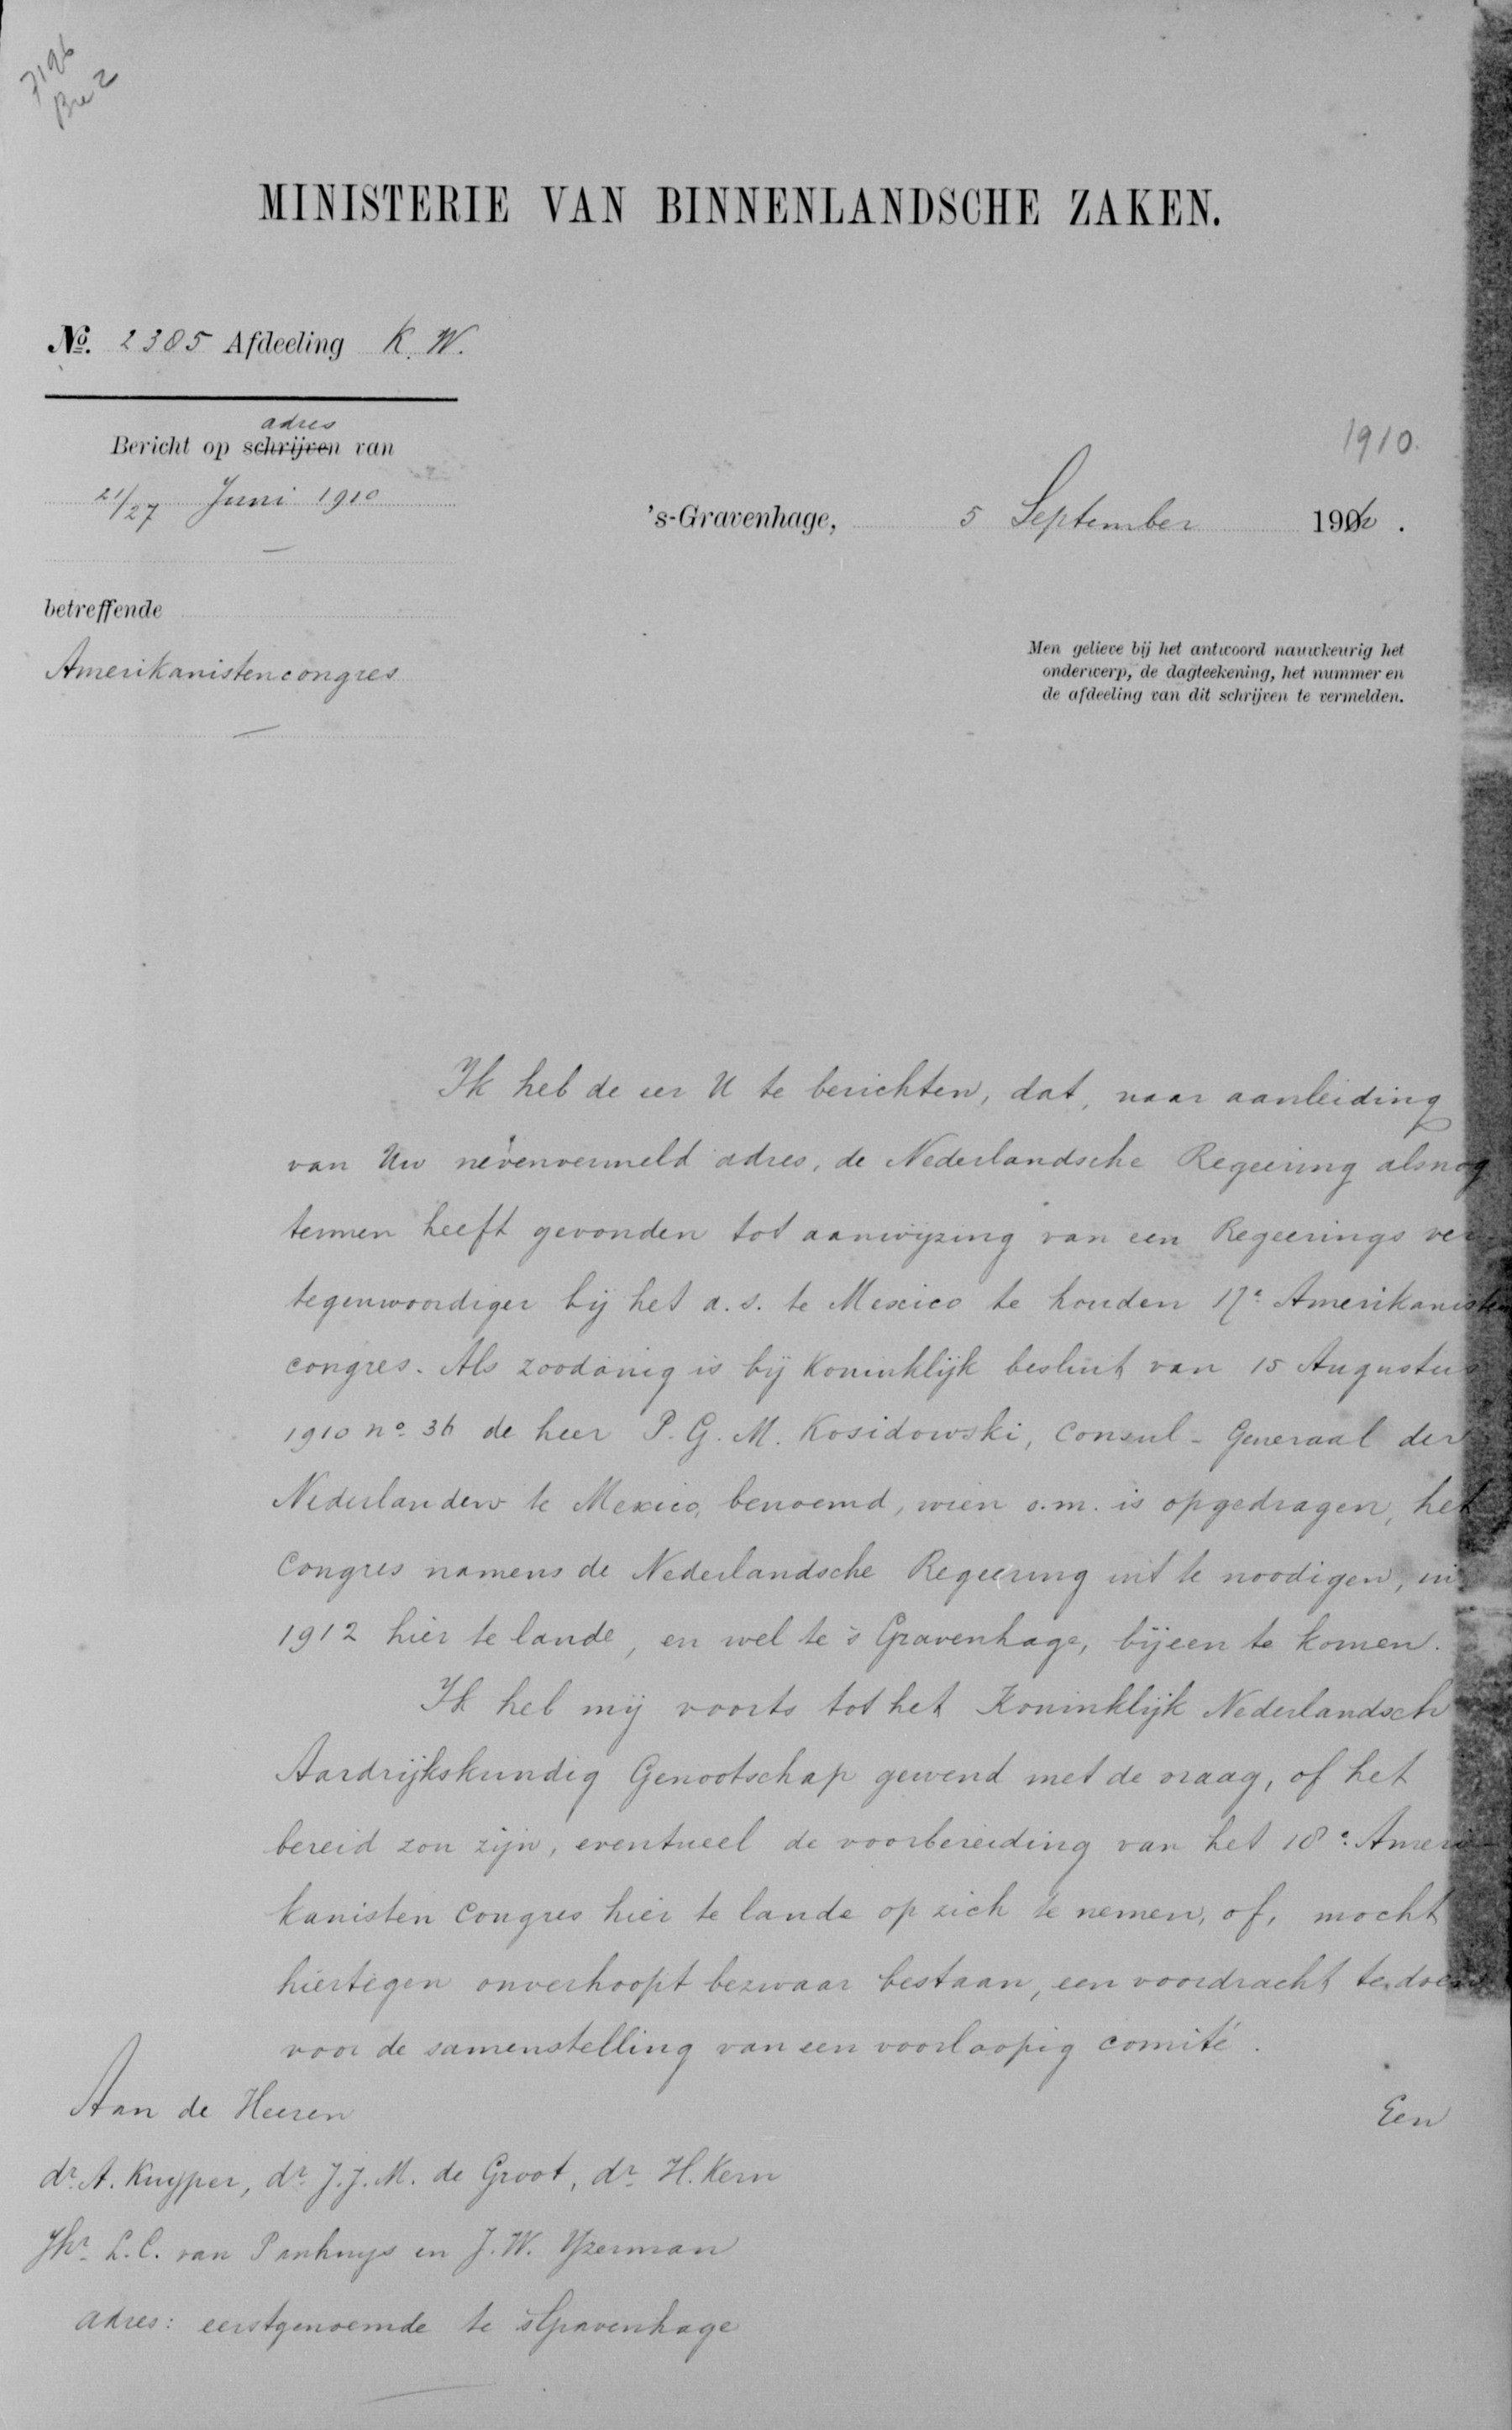 7196
Bre 2
MINISTERIE VAN BINNENLANDSCHE ZAKEN.
No. 2385 Afdeeling K.W.
adres
Bericht op schrijven van
21/27 Juni 1910
betreffende
Amerikanistencongres
1910.
's-Gravenhage, 5 September 190
Men gelieve bij het antwoord nauwkeurig het
onderwerp, de dagteekening, het nummer en
de afdeeling van dit schrijven te vermelden.
Ik heb de eer U te berichten, dat, naar aanleiding
van Uw nevenvermeld adres, de Nederlandsche Regeering alsnog
termen heeft gevonden tot aanwijzing van een Regeerings ver-
tegenwoordiger bij het a.s. te Mexico te houden 17e Amerikanisten
congres. Als zoodanig is bij Koninklijk besluit van 15 Augustus
1910 no. 36 de heer P.G.M. Kosidowski, Consul-Generaal der
Nederlanden te Mexico, benoemd, wien o.m. is opgedragen, het
Congres namens de Nederlandsche Regeering uit te noodigen, in
1912 hier te lande, en wel te 's Gravenhage, bijeen te komen.
Ik heb mij voorts tot het Koninklijk Nederlandsch
Aardrijkskundig Genootschap gewend met de vraag, of het
bereid zou zijn, eventueel de voorbereiding van het 18e Ameri-
kanisten Congres hier te lande op zich te nemen, of, mocht
hiertegen onverhoopt bezwaar bestaan, een voordracht te doen
voor de samenstelling van een voorloopig comité.
Een
Aan de Heeren
dr. A. Kuyper, dr. J.J.M. de Groot, dr. H. Kern
Jhr. L.C. van Panhuys en J.W. Yzerman
adres: eerstgenoemde te 's Gravenhage